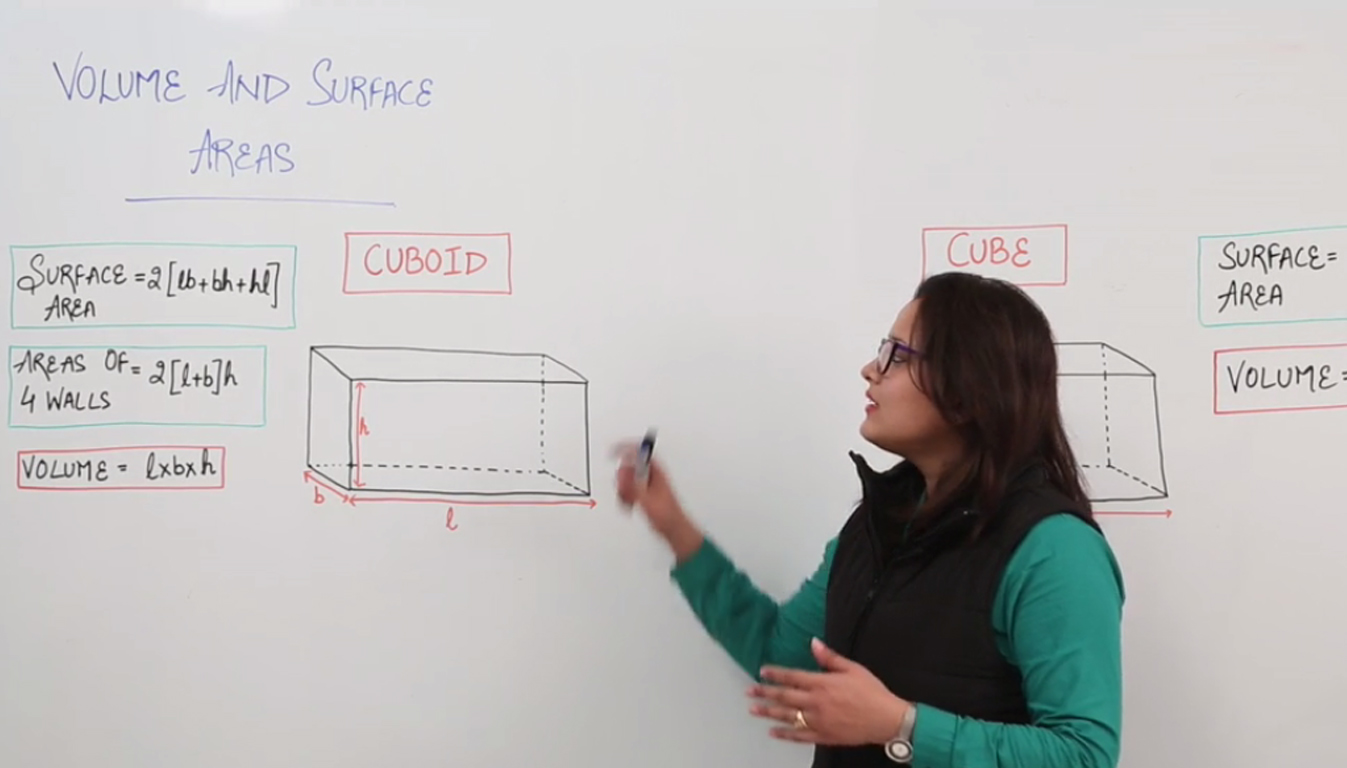 VOLUME AND SURFACE
AREAS
SURFACE = 2[lb+bh+hl]
AREA
AREAS OF = 2[l+b]h
4 WALLS
VOLUME = l×b×h
CUBOID
h
b
l
CUBE
SURFACE=
AREA
VOLUME=